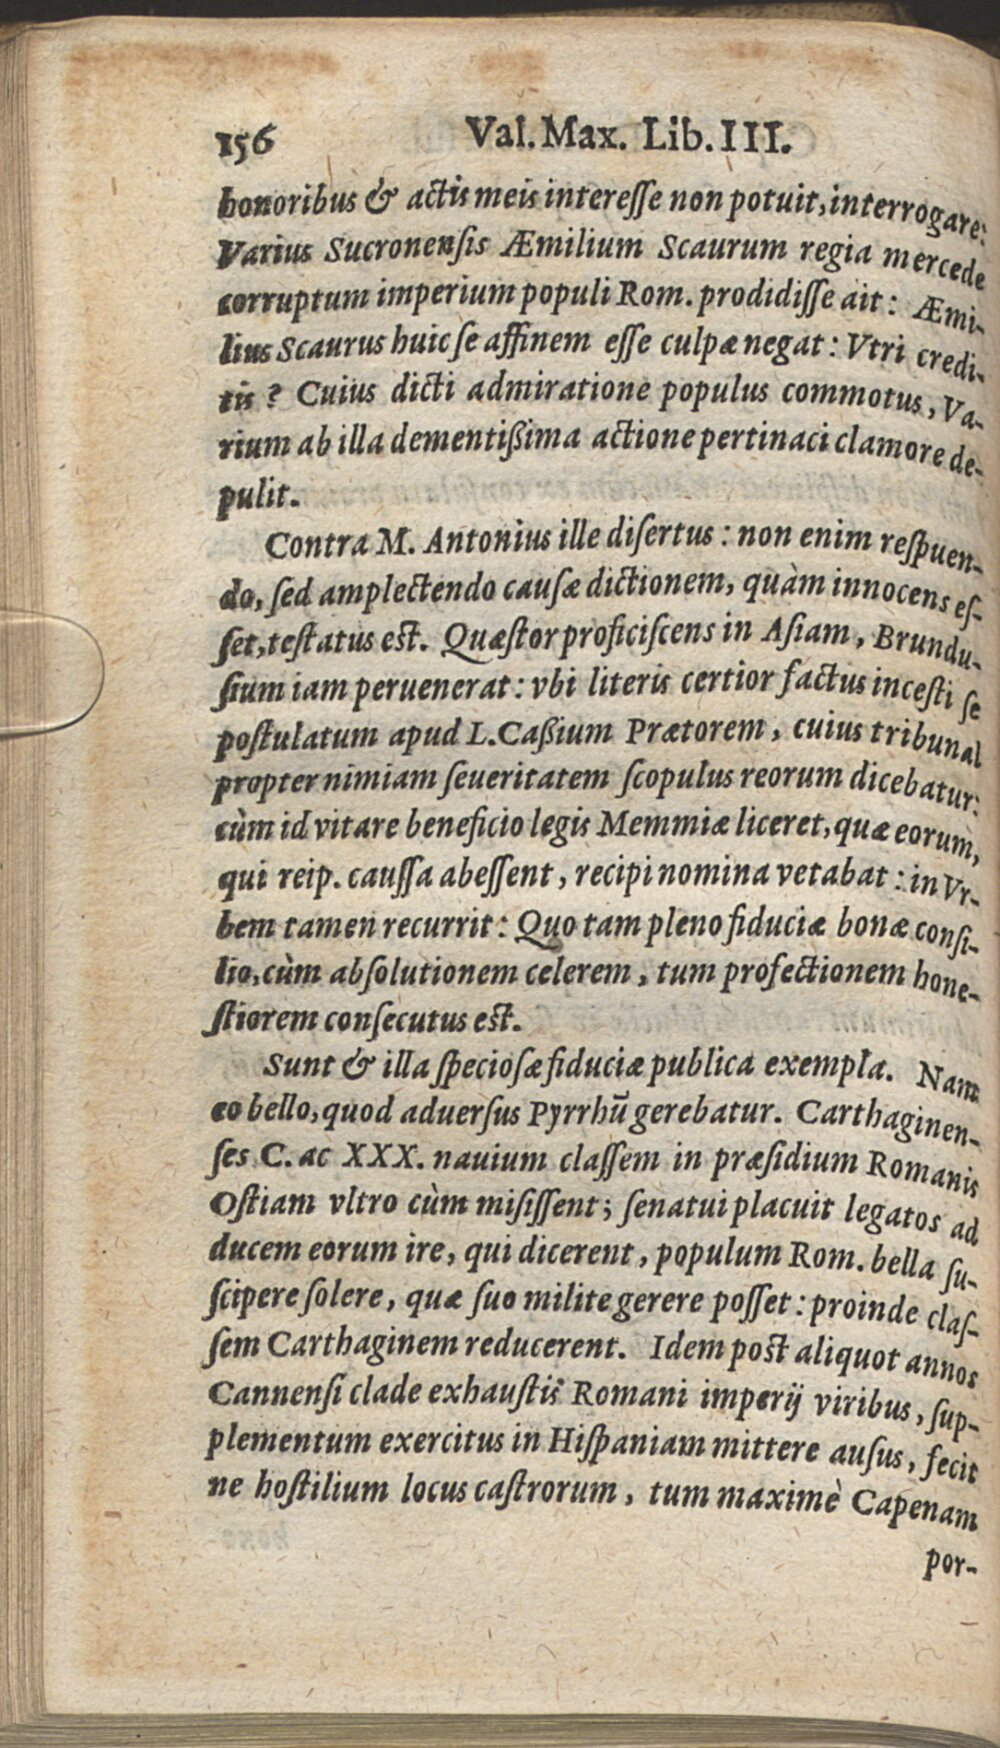 156 Val. Max. Lib. III.
honoribus & actis meis intereſſe non potuit, interrogare:
Varius Sucronenſis Æmilium Scaurum regia mercede
corruptum imperium populi Rom. prodidiſſe ait: Æmi-
lius Scaurus huic ſe affinem eſſe culpæ negat: Vtri credi-
tis? Cuius dicti admiratione populus commotus, Va-
rium ab illa dementißima actione pertinaci clamore de-
pulit.
Contra M. Antonius ille diſertus: non enim reſpuen-
do, ſed amplectendo cauſæ dictionem, quàm innocens eſ-
ſet, teſtatus eſt. Quæſtor proficiſcens in Aſiam, Brundu-
ſium iam peruenerat: vbi literis certior factus inceſti ſe
poſtulatum apud L. Caßium Prætorem, cuius tribunal
propter nimiam ſeueritatem ſcopulus reorum dicebatur:
cùm id vitare beneficio legis Memmiæ liceret, quæ eorum,
qui reip. cauſſa abeſſent, recipi nomina vetabat: in Vr-
bem tamen recurrit: Quo tam pleno fiduciæ bonæ conſi-
lio, cùm abſolutionem celerem, tum profectionem hone-
ſtiorem conſecutus eſt.
Sunt & illa ſpecioſæ fiduciæ publica exempla. Nam
eo bello, quod aduerſus Pyrrhū gerebatur. Carthaginen-
ſes C. ac XXX. nauium claſſem in præſidium Romanis
Oſtiam vltro cùm miſiſſent; ſenatui placuit legatos ad
ducem eorum ire, qui dicerent, populum Rom. bella ſu-
ſcipere ſolere, quæ ſuo milite gerere poſſet: proinde claſ-
ſem Carthaginem reducerent. Idem poſt aliquot annos
Cannenſi clade exhauſtis Romani imperij viribus, ſup-
plementum exercitus in Hiſpaniam mittere auſus, fecit
ne hoſtilium locus caſtrorum, tum maximè Capenam
por-